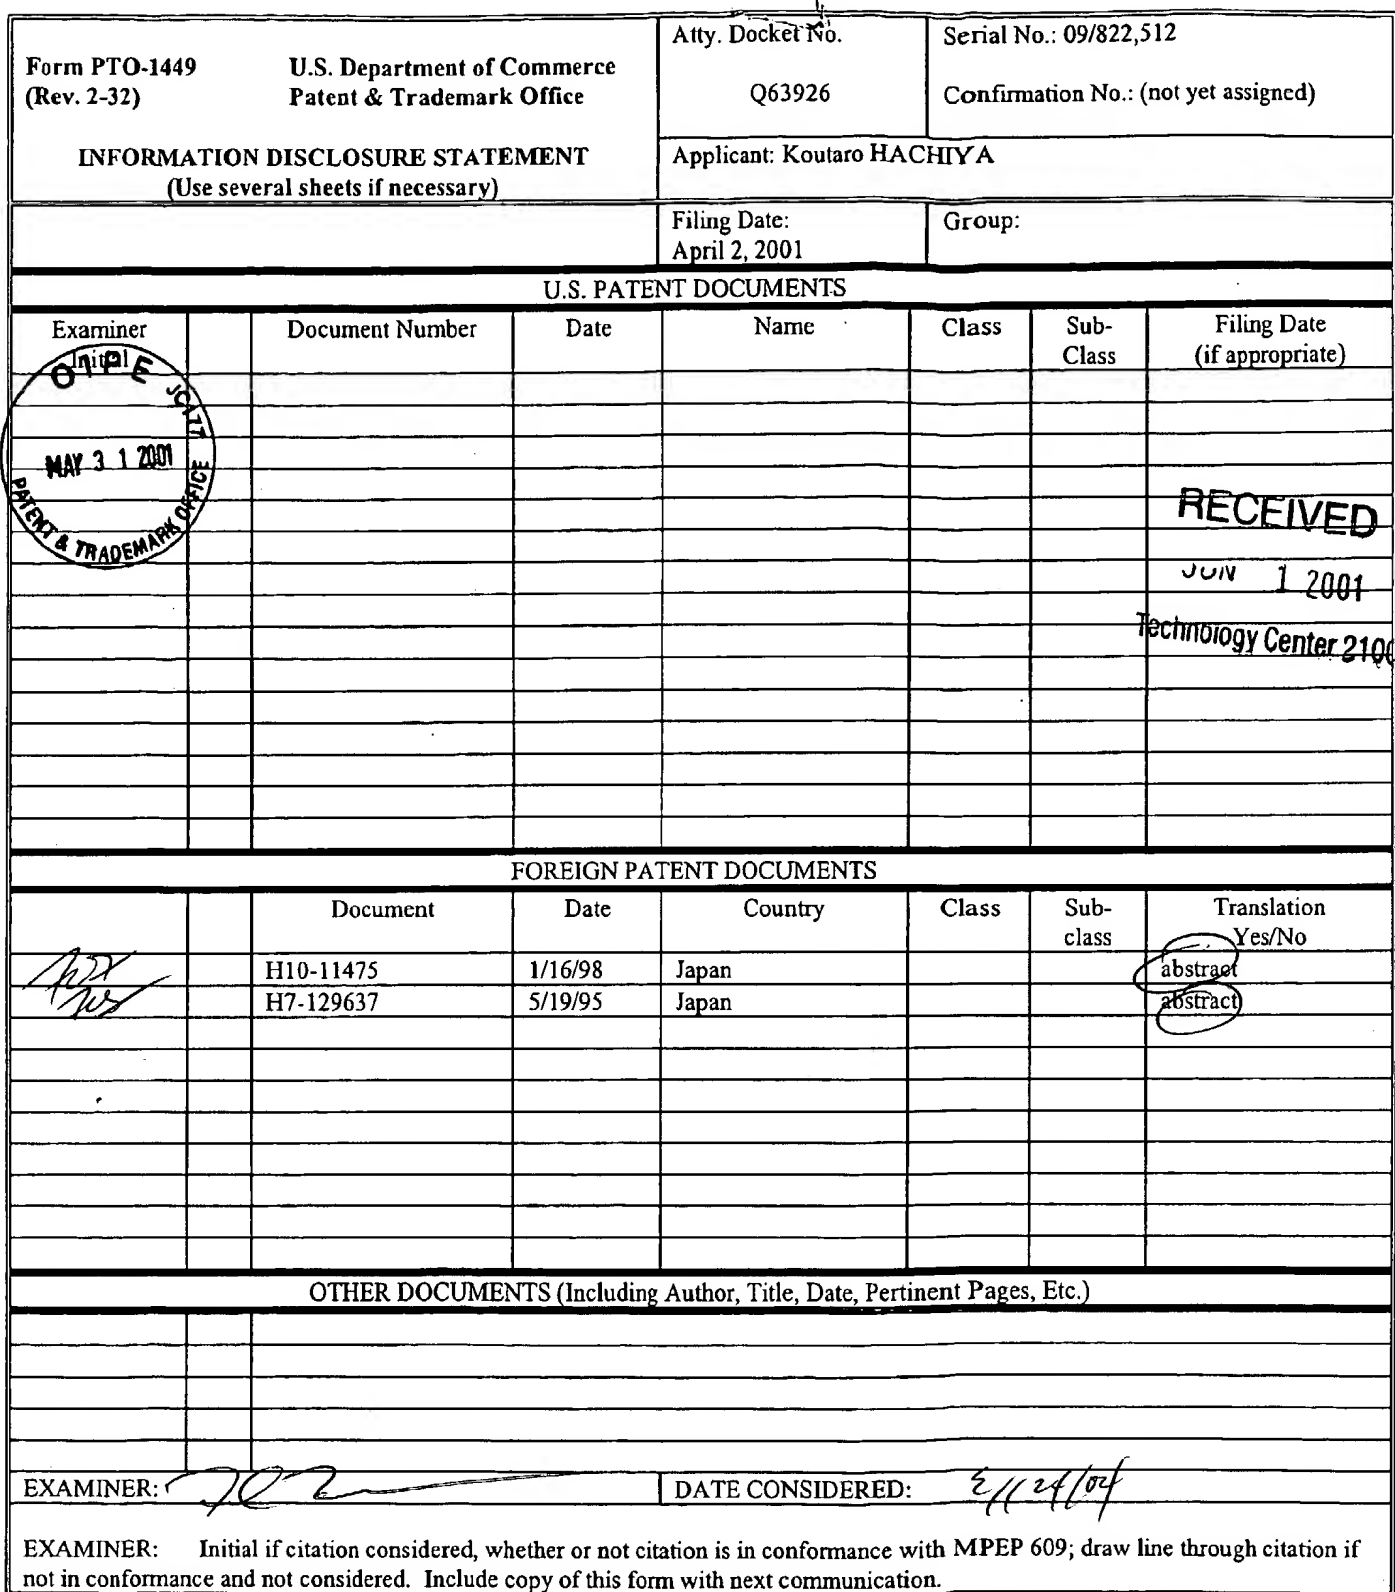 Form PTO-1449
(Rev. 2-32)
U.S. Department of Commerce
Patent & Trademark Office
INFORMATION DISCLOSURE STATEMENT
(Use several sheets if necessary)
Atty. Docket No.
Q63926
Serial No.: 09/822,512
Confirmation No.: (not yet assigned)
Applicant: Koutaro HACHIYA
Filing Date:
April 2, 2001
Group:
U.S. PATENT DOCUMENTS
Examiner
Initial
Document Number
Date
Name
Class
Sub-
Class
Filing Date
(if appropriate)
OIPE
JC177
MAY 3 1 2001
PATENT & TRADEMARK OFFICE
RECEIVED
JUN 1 2001
Technology Center 2100
FOREIGN PATENT DOCUMENTS
Document
Date
Country
Class
Sub-
class
Translation
Yes/No
H10-11475 1/16/98 Japan abstract
H7-129637 5/19/95 Japan abstract
OTHER DOCUMENTS (Including Author, Title, Date, Pertinent Pages, Etc.)
EXAMINER:
DATE CONSIDERED:
EXAMINER: Initial if citation considered, whether or not citation is in conformance with MPEP 609; draw line through citation if
not in conformance and not considered. Include copy of this form with next communication.